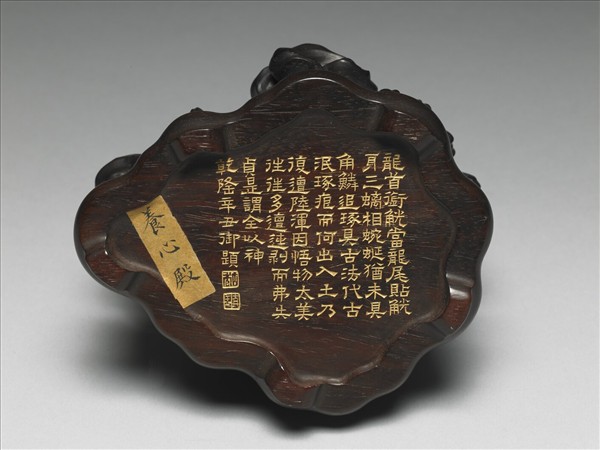 龍首銜觥當龍尾貼觥
耳三螭相蜿蜒猶未具
角鱗追琢具古法代古
泯琢痕而何出入土乃
復遭陸渾因悟物太美
往往多遭迍剥而弗失
貞是謂全以神
乾隆辛丑御題
養心殿